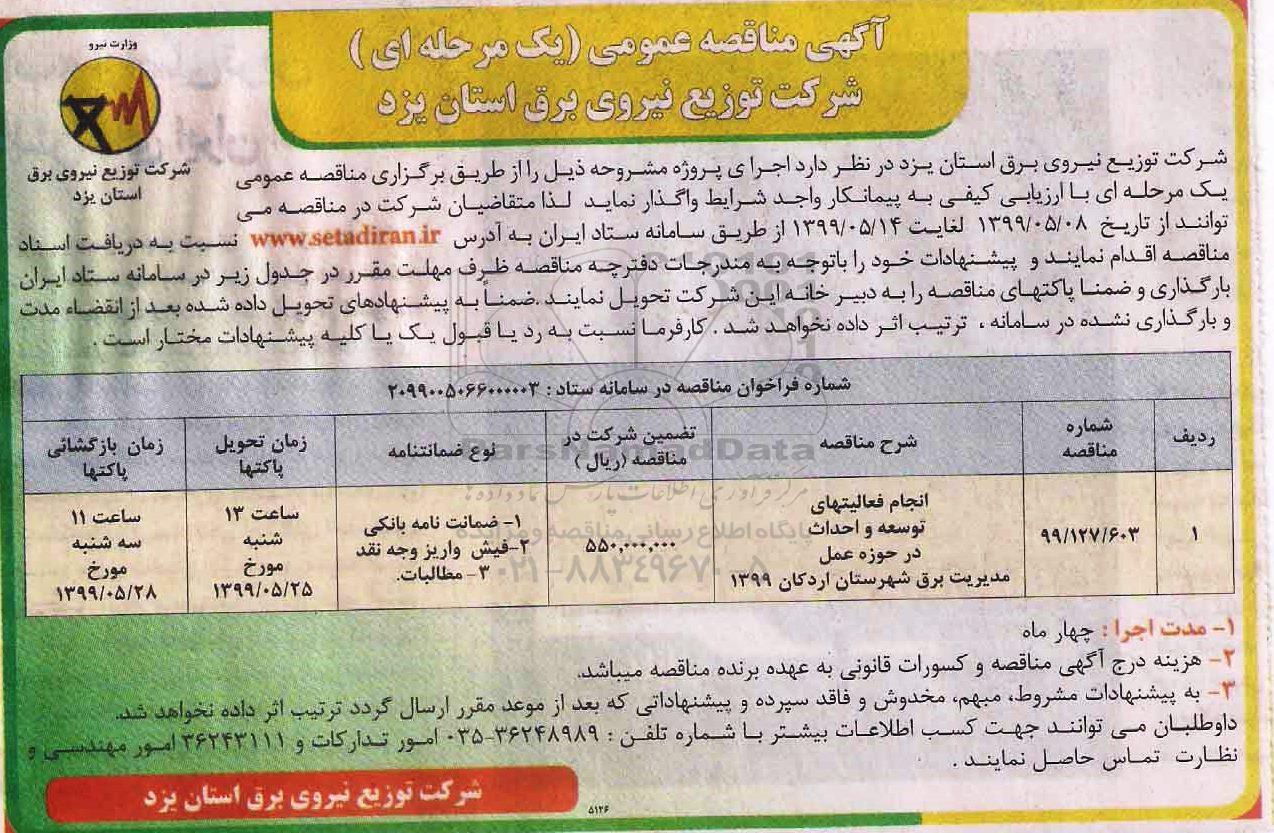 آگهی مناقصه عمومی (یک مرحله ای )
شرکت توزیع نیروی برق استان یزد
وزارت نیرو
شرکت توزیع نیروی برق
استان یزد
شرکت توزیع نیروی برق استان یزد در نظر دارد اجرا ی پروژه مشروحه ذیل را از طریق برگزاری مناقصه عمومی
یک مرحله ای با ارزیابی کیفی به پیمانکار واجد شرایط واگذار نماید لذا متقاضیان شرکت در مناقصه می
توانند از تاریخ ۱۳۹۹/۰۵/۰۸ لغایت ۱۳۹۹/۰۵/۱۴ از طریق سامانه ستاد ایران به آدرس www.setadiran.ir نسبت به دریافت اسناد
مناقصه اقدام نمایند و پیشنهادات خود را باتوجه به مندرجات دفترچه مناقصه ظرف مهلت مقرر در جدول زیر در سامانه ستاد ایران
بارگذاری و ضمنا پاکتهای مناقصه را به دبیر خانه این شرکت تحویل نمایند .ضمناً به پیشنهادهای تحویل داده شده بعد از انقضاء مدت
و بارگذاری نشده در سامانه ، ترتیب اثر داده نخواهد شد . کارفرما نسبت به رد یا قبول یک یا کلیه پیشنهادات مختار است .
شماره فراخوان مناقصه در سامانه ستاد : ۲۰۹۹۰۰۵۰۶۶۰۰۰۰۰۳
ردیف
شماره
مناقصه
شرح مناقصه
تضمین شرکت در
مناقصه (ریال )
نوع ضمانتنامه
زمان تحویل
پاکتها
زمان بازگشائی
پاکتها
۱
۹۹/۱۲۷/۶۰۳
انجام فعالیتهای
توسعه و احداث
در حوزه عمل
مدیریت برق شهرستان اردکان ۱۳۹۹
۵۵۰,۰۰۰,۰۰۰
۱- ضمانت نامه بانکی
۲-فیش واریز وجه نقد
۳- مطالبات.
ساعت ۱۳
شنبه
مورخ
۱۳۹۹/۰۵/۲۵
ساعت ۱۱
سه شنبه
مورخ
۱۳۹۹/۰۵/۲۸
ParsNamadData
مرکز فرآوری اطلاعات پارس نماد داده ها
پایگاه اطلاع رسانی مناقصه و مزایده
۰۲۱-۸۸۳۴۹۶۷۰-۵
۱- مدت اجرا : چهار ماه
۲- هزینه درج آگهی مناقصه و کسورات قانونی به عهده برنده مناقصه میباشد.
۳- به پیشنهادات مشروط، مبهم، مخدوش و فاقد سپرده و پیشنهاداتی که بعد از موعد مقرر ارسال گردد ترتیب اثر داده نخواهد شد.
داوطلبان می توانند جهت کسب اطلاعات بیشتر با شماره تلفن : ۳۶۲۴۸۹۸۹-۰۳۵ امور تدارکات و ۳۶۲۴۳۱۱۱ امور مهندسی و
نظارت تماس حاصل نمایند .
شرکت توزیع نیروی برق استان یزد
۵۱۲۶